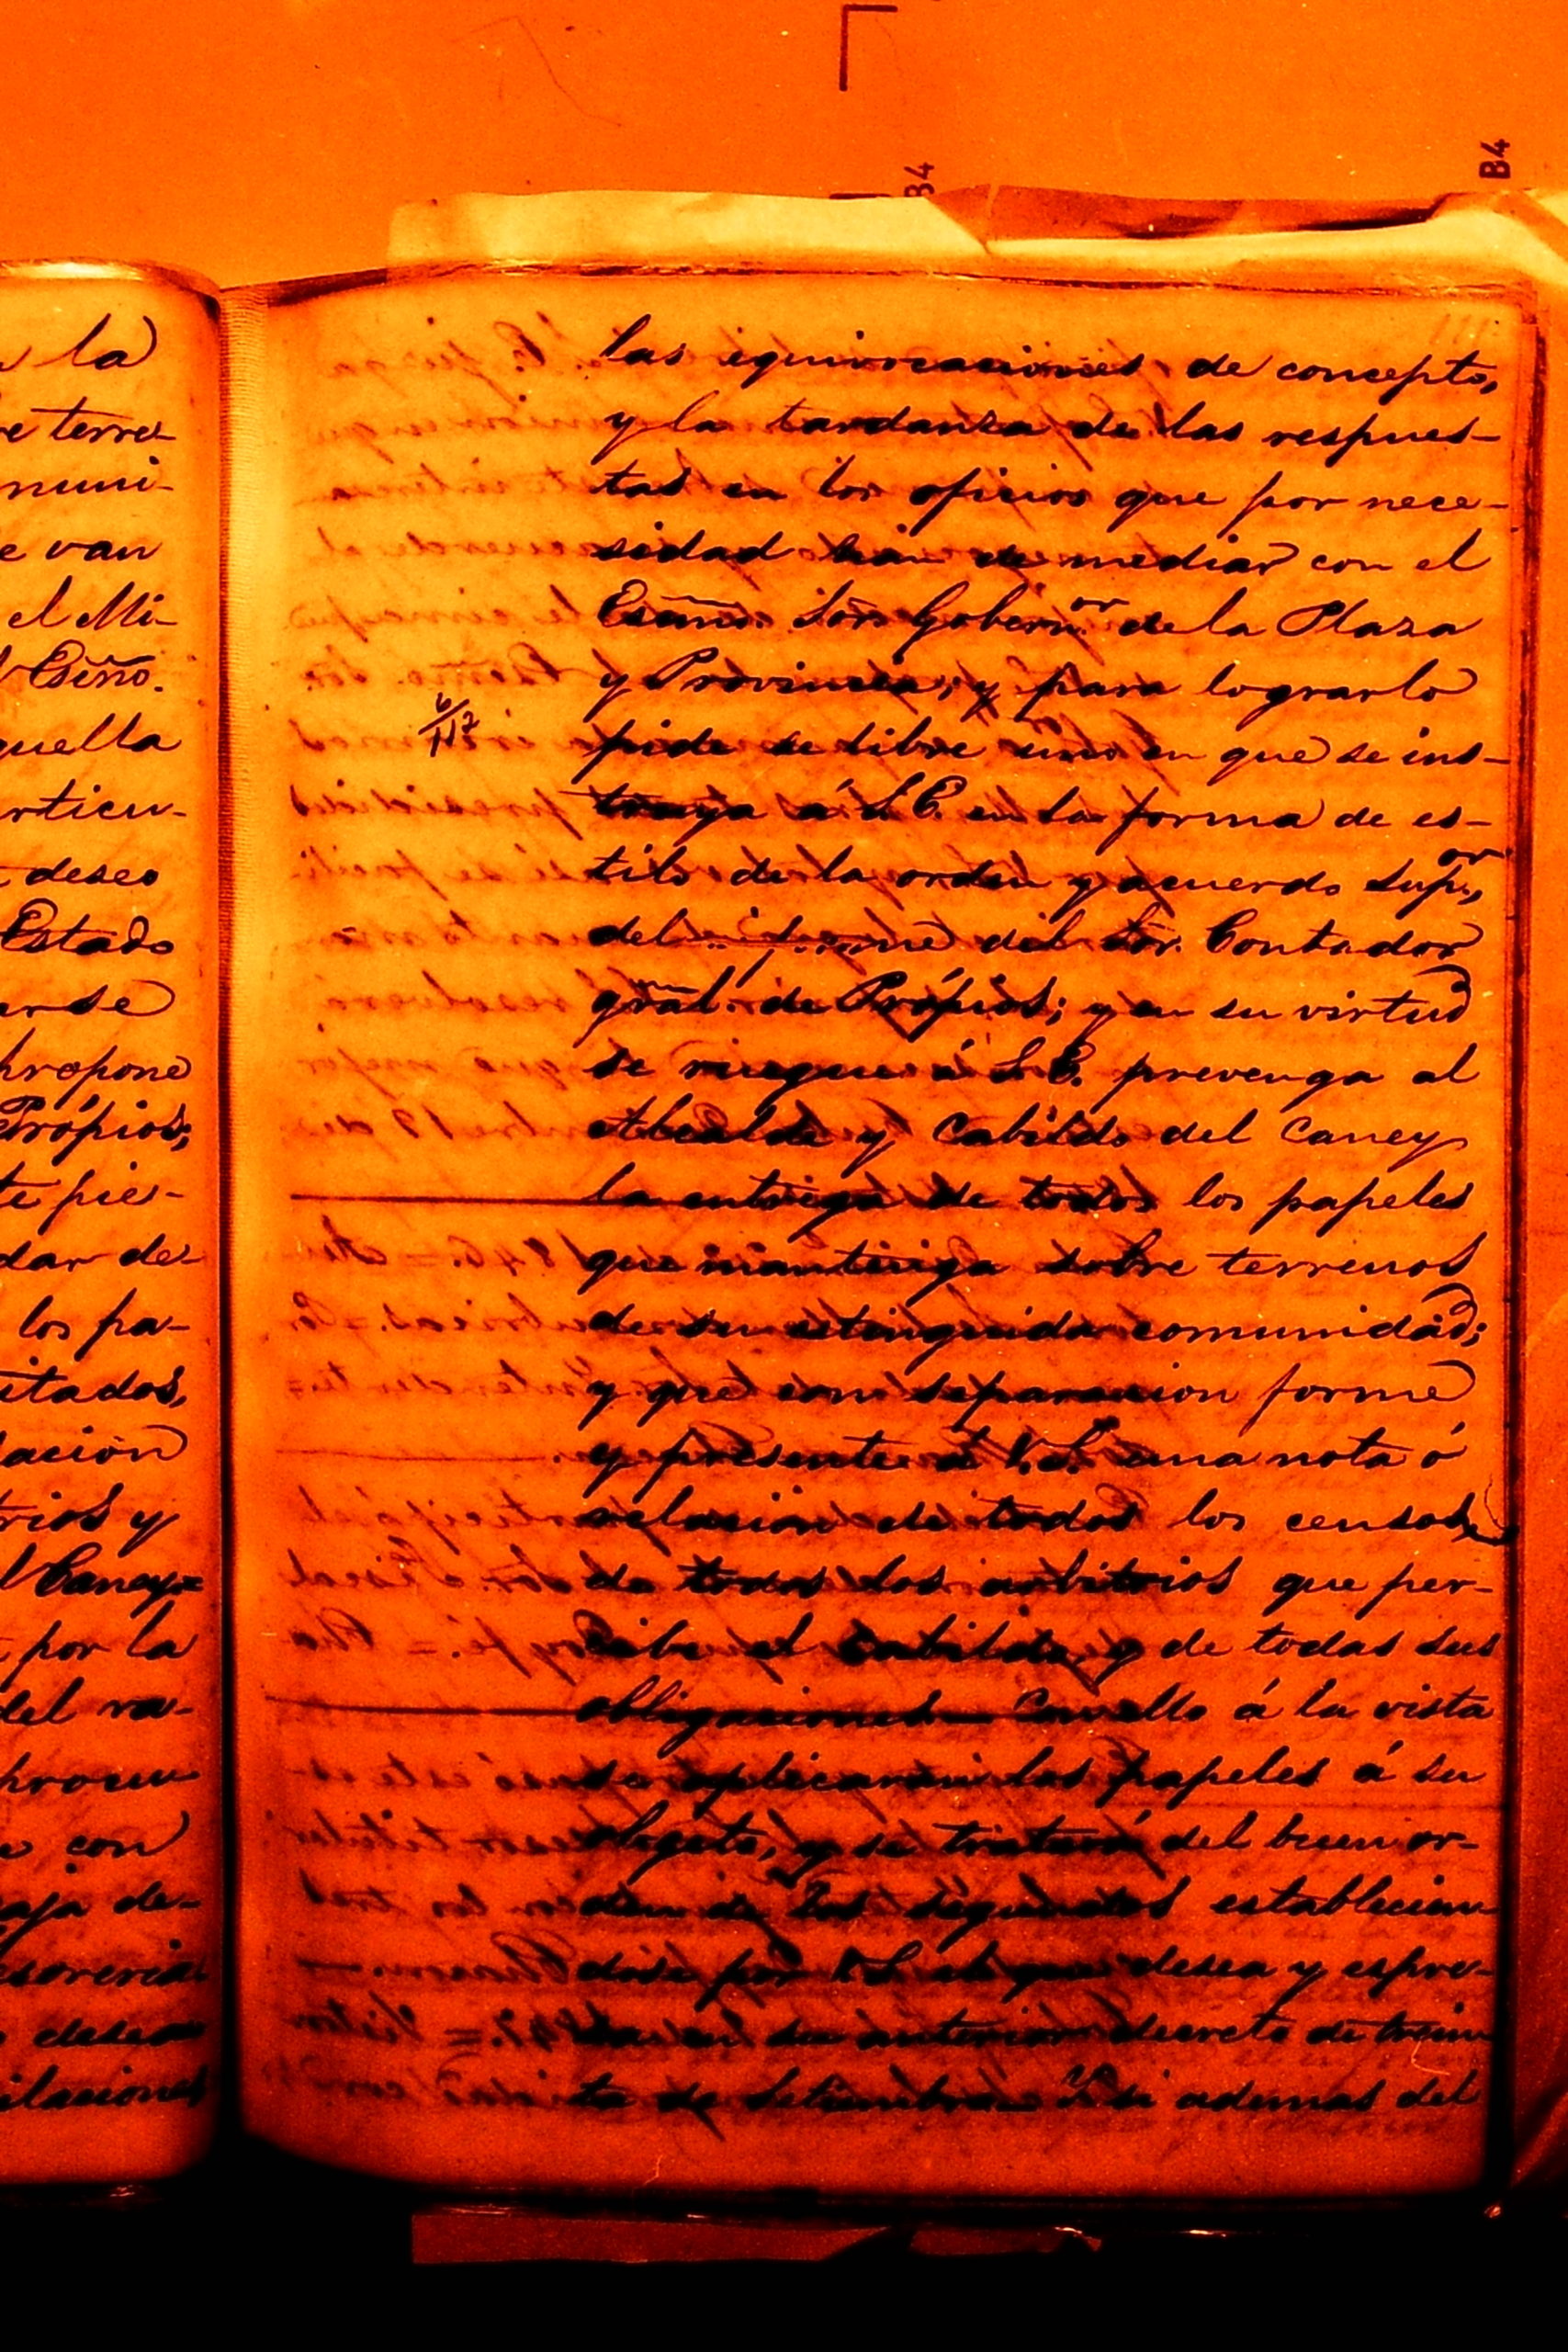 B4
B4
la
terre-
muni-
e van
el Mi-
Esmo.
quella
articu-
deseo
Estado
arse
propone
Própios;
te pie-
dar de-
los pa-
itados,
lación
trios y
l Caney=
por la
del ra-
con
aja de-
desea
ilaciones
111.
las equivocaciones de concepto,
y la tardanza de las respues-
tas en los oficios que por nece-
sidad han de mediar con el
Esmo. Sor. Gobernor. de la Plaza
y Provincia; y para lograrlo
6/112
pide se libre uno en que se ins-
truya á S.E. en la forma de es-
tilo de la orden y acuerdo Supor,
del informe del Sor. Contador
gral. de Própios; y en su virtud
se ruegue á S.E. prevenga al
Alcalde y Cabildo del Caney
la entrega de todos los papeles
que mantenga sobre terrenos
de su estinguida comunidad;
y que con separacion forme
y presente á V.S. una nota ó
relacion de todos los censos,
de todos los arbitrios que per-
cibe el Cabildo, y de todas sus
obligaciones. Con ello á la vista
se aplicarán los papeles á su
objeto, y se tratará del buen or-
den de los segundos establecien-
dose por V.S. el que desea y espre-
sa en su anterior decreto de trein-
ta de Setiembre. Y si ademas del